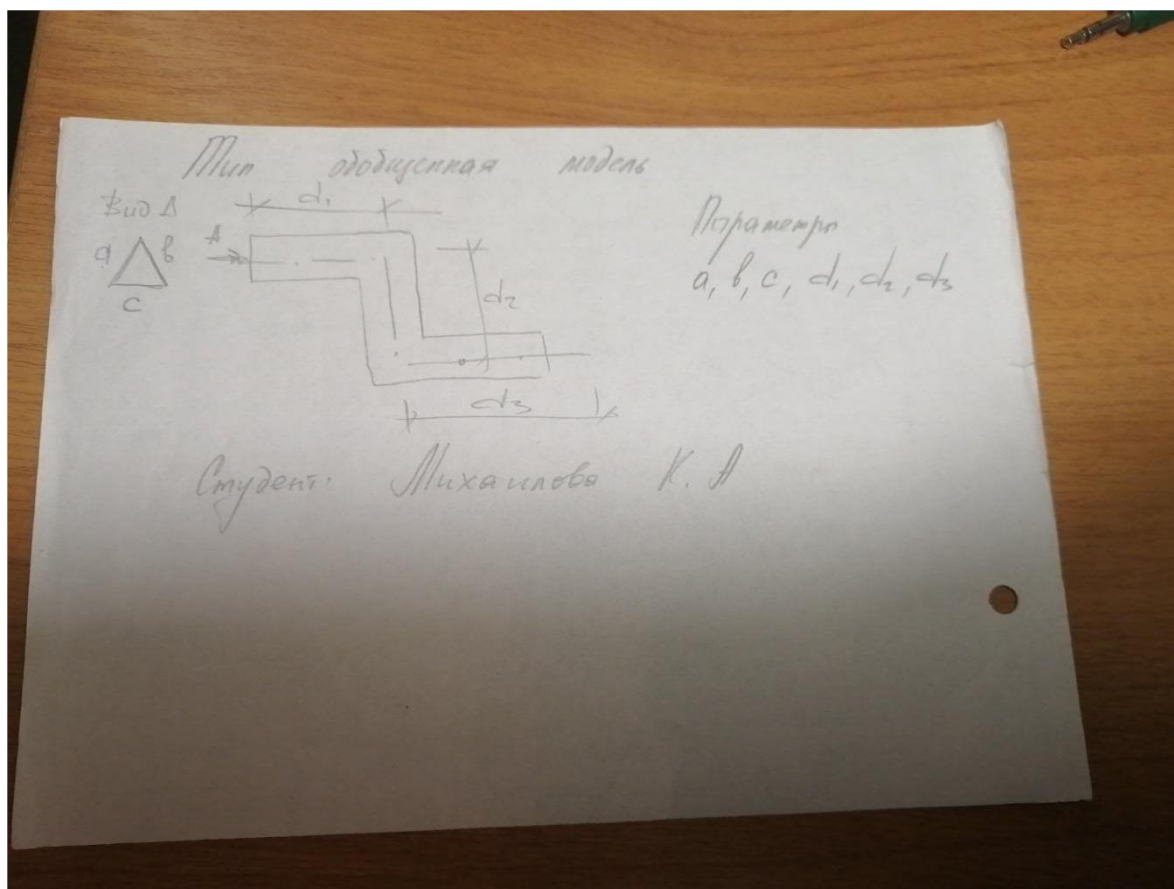 Тип обобщенная модель
Вид А
d₁
А
а в
с
d₂
d₃
Параметры
а, в, с, d₁, d₂, d₃
Студент: Михаилова К. А